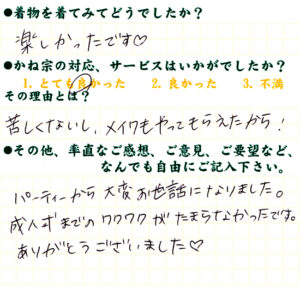 ●着物を着てみてどうでしたか？
楽しかったです♡
●かね宗の対応、サービスはいかがでしたか？
1. とても良かった　2. 良かった　3. 不満
その理由とは？
苦しくないし、メイクもやってもらえたから！
●その他、率直なご感想、ご意見、ご要望など、
なんでも自由にご記入下さい。
パーティーから大変お世話になりました。
成人式までのワクワクがたまらなかったです。
ありがとうございました♡